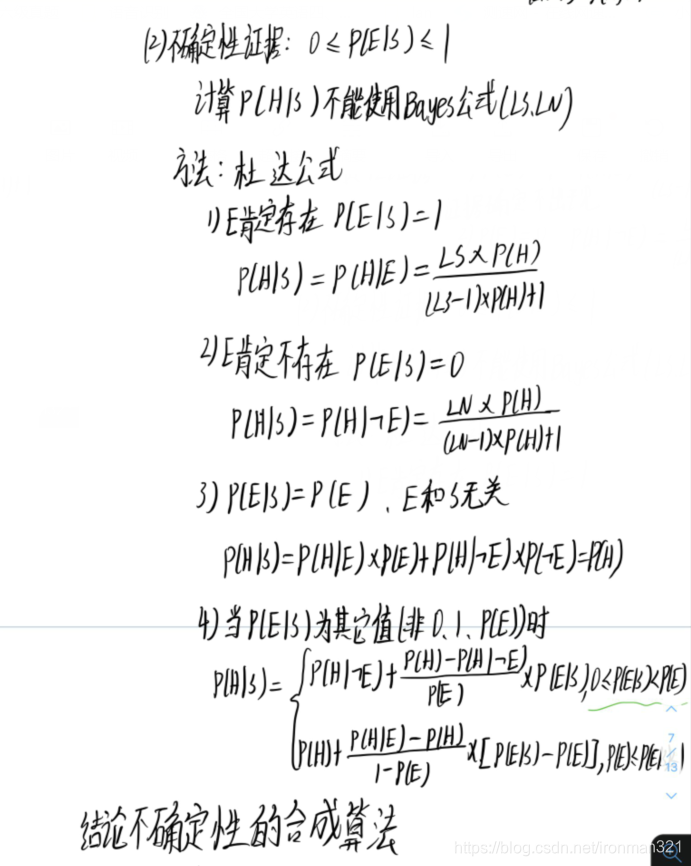 (2)不确定性证据: 0≤P(E|S)≤1
计算P(H|S)不能使用Bayes公式(LS、LN)
方法: 杜达公式
1)E肯定存在 P(E|S)=1
P(H|S)=P(H|E)=\frac{LS×P(H)}{(LS-1)×P(H)+1}
2)E肯定不存在 P(E|S)=0
P(H|S)=P(H|¬E)=\frac{LN×P(H)}{(LN-1)×P(H)+1}
3)P(E|S)=P(E)、E和S无关
P(H|S)=P(H|E)×P(E)+P(H|¬E)×P(¬E)=P(H)
4)当P(E|S)为其它值(非0、1、P(E))时
P(H|S)={P(H|¬E)+\frac{P(H)-P(H|¬E)}{P(E)}×P(E|S),0≤P(E|S)<P(E)
P(H)+\frac{P(H|E)-P(H)}{1-P(E)}×[P(E|S)-P(E)],P(E)≤P(E
7
13
结论不确定性的合成算法
https://blog.csdn.net/ironman321